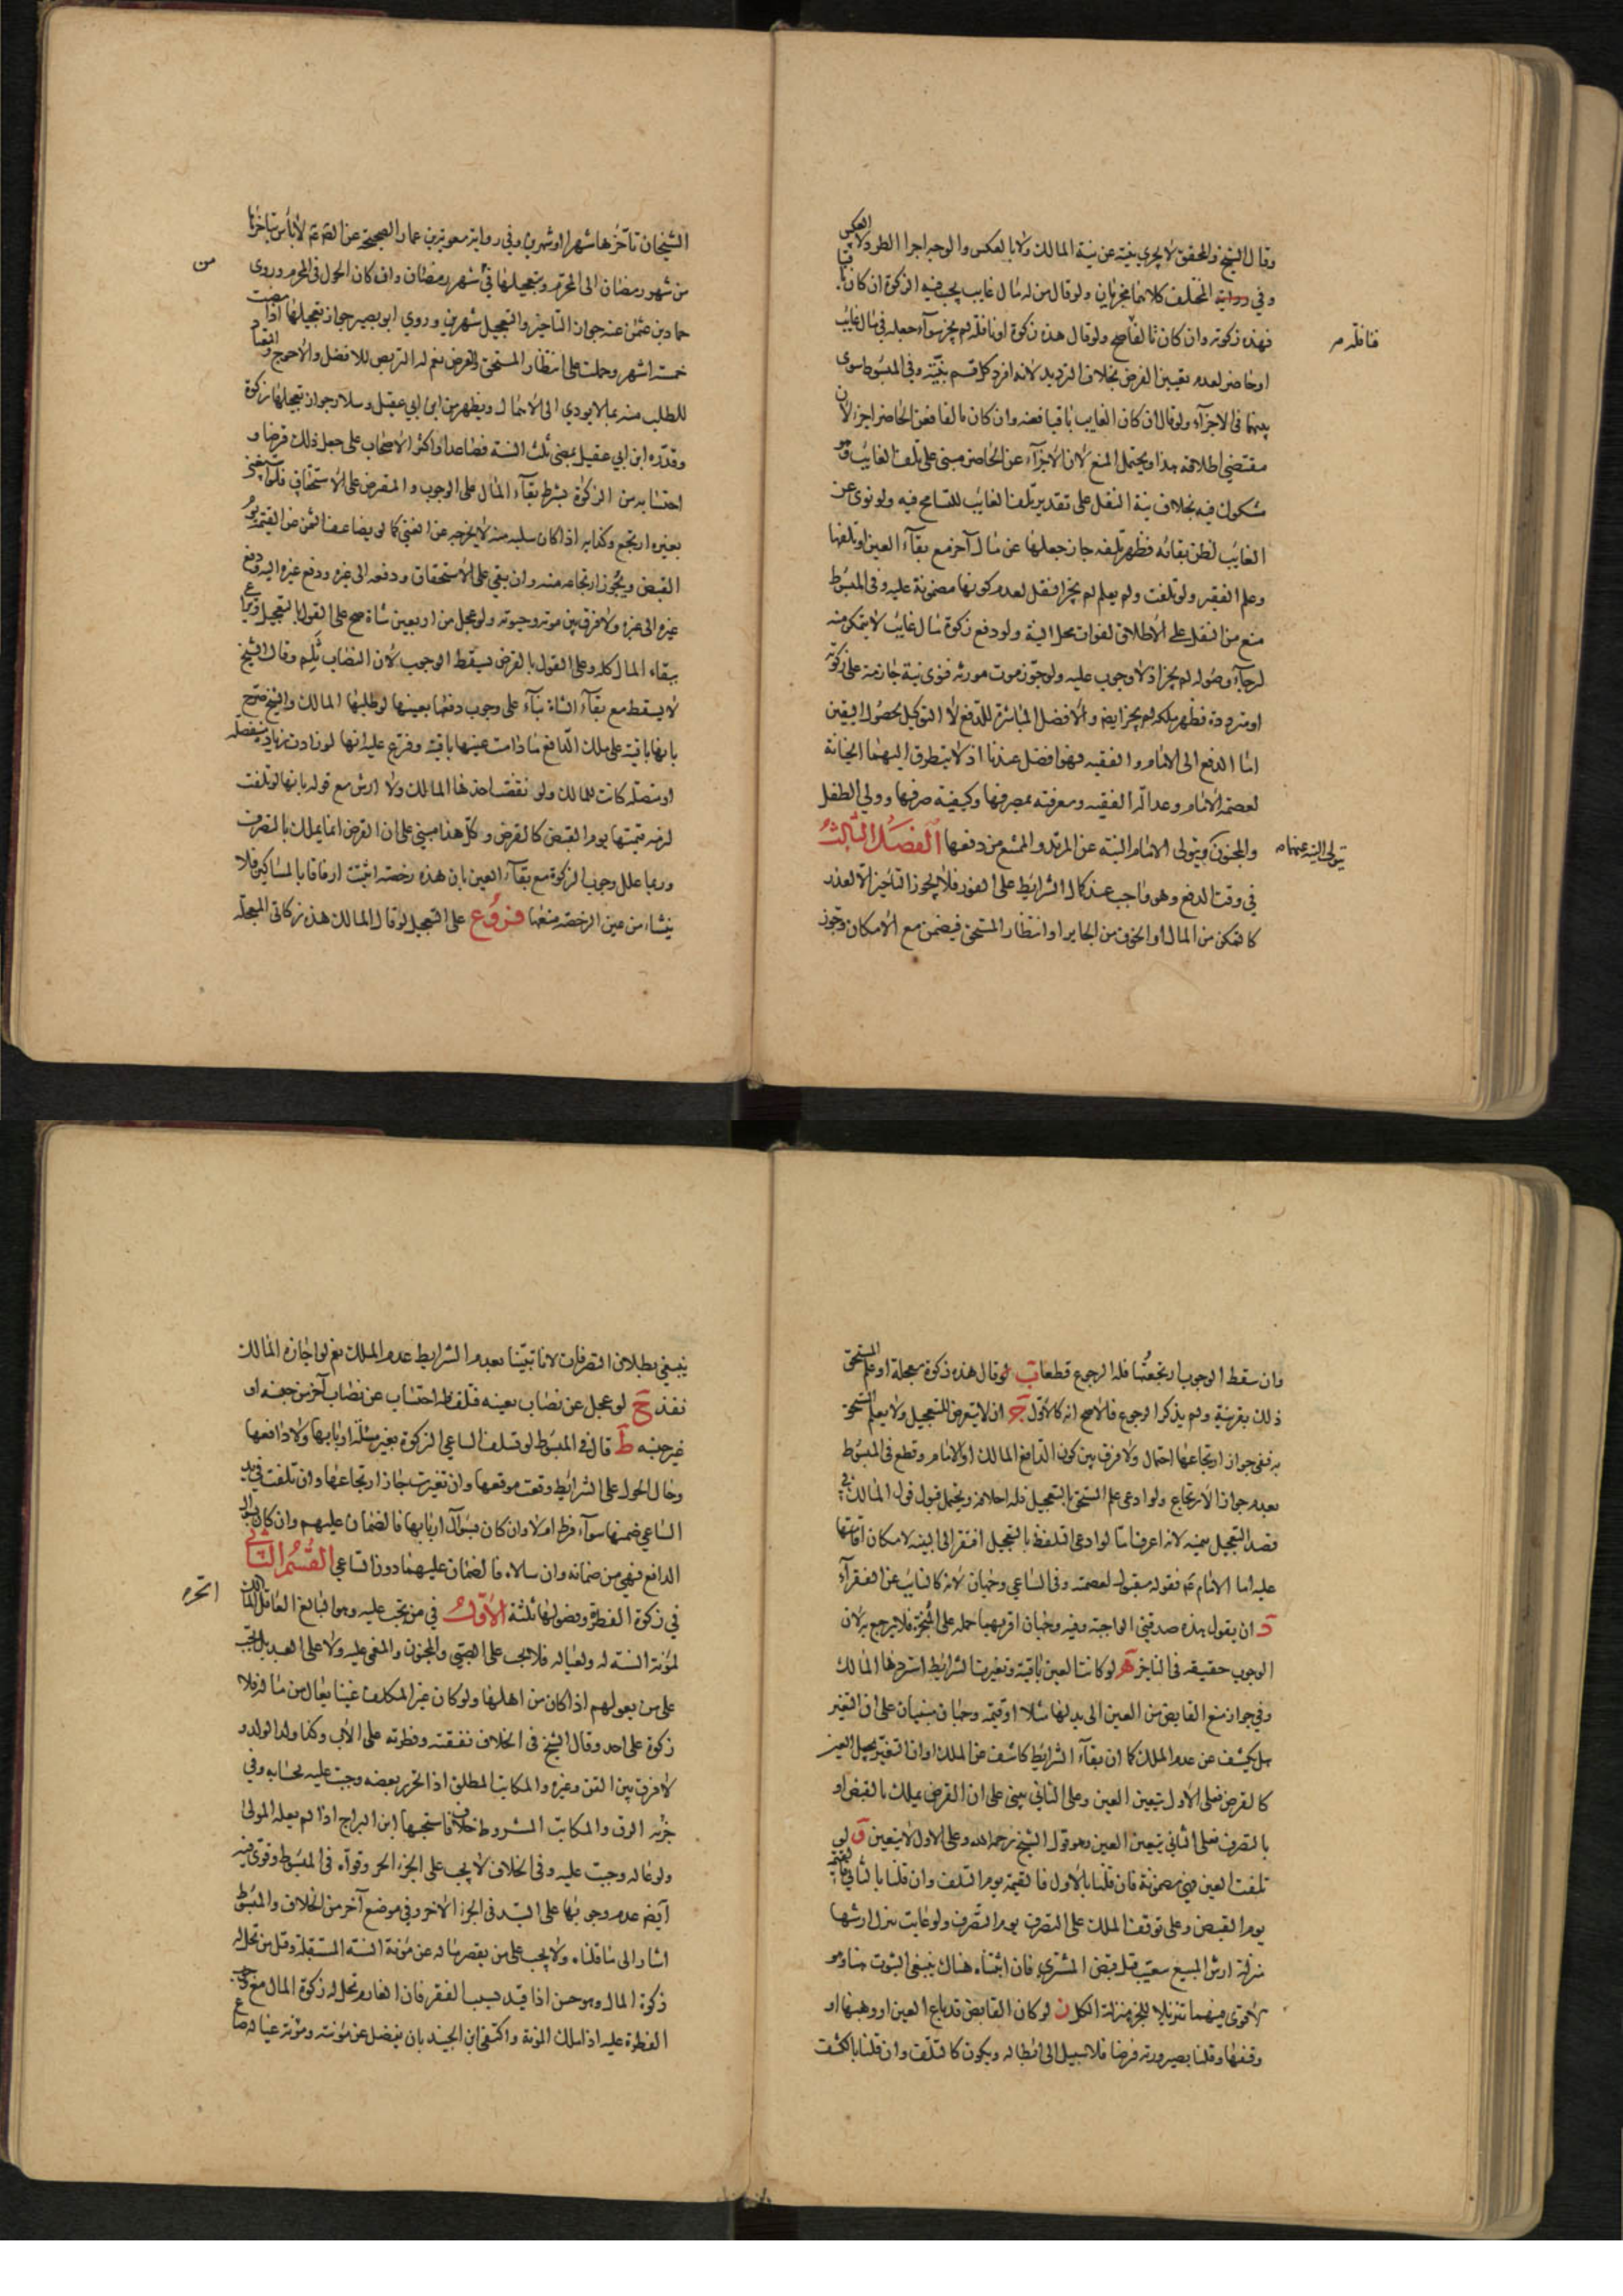 وقال الشيخ والمحقق لا يجزي بنيته عن نية المالك ولا بالعكس والوجه اجرا الطرد لا العكس
وفي المختلف كلاهما يجزيان ولو قال من له مال غايب يجب فيه الزكوة ان كان باقيا
فهذه زكوته وان كان تالفا صح ولو قال هذه زكوة او نافلة لم يجز سوآء جعله في مال غايب
فنافلة
او حاضر لعدم تعيين الفرض بخلاف الترديد لانه افرد كل قسم بنيته وفي المبسوط سوى
بينهما في الاجزآء ولو قال ان كان الغايب باقيا فعنه وان كان تالفا فعن الحاضر اجزأ لان
مقتضى اطلاقه هذا ويحتمل المنع لان الاجزآء عن الحاضر مبنى على تلف الغايب وهو
مشكوك فيه بخلاف نية النفل على تقدير تلف الغايب للتسامح فيه ولو نوى عن
الغايب لظن بقائه فظهر تلفه جاز جعلها عن مال آخر مع بقآء العين او تلفها
وعلم الفقير ولو تلفت ولم يعلم لم يجز النقل لعدم كونها مضمونة عليه وفي المبسوط
منع من النقل على الاطلاق لفوات محل النية ولو دفع زكوة مال غايب لا يتمكن منه
لرجآء وصوله لم يجز اذ لا وجوب عليه ولو جوز موت مورثه فنوى نية جازمة على زكوته
او مترددة فظهر ملكه لم يجز ايضا والافضل المباشرة للدفع لا التوكيل لحصول اليقين
اما الدفع الى الامام والفقيه فهو افضل عندنا اذ لا يتطرق اليهما الخيانة
لعصمة الامام وعدالة الفقيه ومعرفته بمصرفها وكيفية صرفها وولي الطفل
والمجنون ويتولى الامام النية عن المرتد والممتنع من دفعها الفصل الثالث
يتولى النية عنهما
في وقت الدفع وهو واجب عند كمال الشرايط على الفور فلا يجوز التاخير الا لعذر
كالتمكن من المال او الخوف من الجاير او انتظار المستحق فيضمن مع الامكان وجوز
الشيخان تأخرها شهرا او شهرين وفي رواية معوية بن عمار الصحيحة عن الصم لا بأس بتاخرها
من شهر رمضان الى المحرم وبتعجيلها في شهر رمضان وان كان الحول في المحرم وروى
حماد بن عثمن عنه جواز التاخير والتعجيل شهرين وروي ابو بصير جواز تعجيلها اذا مضت
خمسة اشهر وحملت على انتظار المستحق والقرض نعم له التربص للافضل والاحوج والمعتاد
للطلب منه بما لا يودي الى الاهمال ويظهر من ابن ابي عقيل وسلار جواز تعجيلها زكوة
وقدره ابن ابي عقيل بمضى ثلث السنة فصاعدا واكثر الاصحاب على جعل ذلك قرضا و
احتسابه من الزكوة بشرط بقآء المال على الوجوب والمقرض على الاستحقاق فلو استغنى
بغيره ارتجع وكذا به اذا كان سلبه منه لا يخرجه عن الغنى كما لو تضاعف الثمن عن القيمة يوم
القبض ويجوز ارتجاعه منه وان بقي على الاستحقاق ودفعه الى غيره ودفع غيره اليه ودفع
غيره الى غيره ولا فرق بين موته وحيوته ولو عجل من اربعين شاة صح على القول بالتعجيل
ببقاء المال كله وعلى القول بالقرض يسقط الوجوب لان النصاب ثلم وقال الشيخ
لا يسقط مع بقآء الشاة بنآء على وجوب دفعها بعينها لو طلبها المالك والشيخ صرح
بانها باقية على ملك الدافع ما دامت عينها باقية وفرع عليه انها لو زادت زيادة منفصلة
او متصلة كانت للمالك ولو نقصت اخذها المالك ولا ارش مع قوله بانها لو تلفت
لزمه قيمتها يوم القبض كالقرض وكل هذا مبنى على ان القرض انما يملك بالتصرف
وربما علل وجوب الزكوة مع بقآء العين بان هذه رخصة اثبتت ارفاقا بالمساكين فلا
ينشاء من عين الرخصة منعها فروع على التعجيل لو قال المالك هذه زكاتى المعجلة
وان سقط الوجوب ارتجعتها فله الرجوع قطعا ب لو قال هذه زكوة معجلة او علم المستحق
ذلك بقرينة ولم يذكر الرجوع فالاصح انه كالاول ج ان لا يتعرض للتعجيل ولا يعلم المستحق
به ففي جواز ارتجاعها احتمال ولا فرق بين كون الدافع المالك او الامام وقطع في المبسوط
بعدم جواز الارتجاع ولو ادعى علم المستحق بالتعجيل فله احلافه ويحتمل قبول قول المالك في
قصد التعجيل بيمينه لانه اعرف اما لو ادعى التلفظ بالتعجيل افتقر الى البينة لامكان اقامتها
عليه اما الامام فقوله مقبول لعصمته وفي الساعي وجهان لانه كالنايب عن الفقرآء
د ان يقول هذه صدقتي الواجبة وفيه وجهان اقربهما حمله على المنجزة فلا يرجع به لان
الوجوب حقيقة في الناجز ه لو كانت العين باقية وتغيرت الشرايط استردها المالك
وفي جواز منع القابض من العين الى بدلها مثلا او قيمة وجهان مبنيان على ان التغير
هل يكشف عن عدم الملك كما ان بقآء الشرايط كاشف عن الملك او ان التغير يحيل العين
كالقرض فعلى الاول يتعين العين وعلى الثاني يبنى على ان القرض يملك بالقبض او
بالتصرف فعلى الثاني يتعين العين وهو قول الشيخ رحمه الله وعلى الاول لا يتعين و لو
تلفت العين فهي مضمونة فان قلنا بالاول فالقيمة يوم التلف وان قلنا بالثاني فالقيمة
يوم القبض وعلى توقف الملك على التصرف يوم التصرف ولو عابت نزل ارشها
منزلة ارش المبيع معيب قبل قبض المشترى فان اثبتناه هناك ينبغى الثبوت هنا وهو
الاقوى فيهما تنزيلا للجزء منزلة الكل ز لو كان القابض قد باع العين او وهبها او
وقفها وقلنا بصيرورته قرضا فلا سبيل الى ابطاله ويكون كالتلف وان قلنا بالكشف
ينبغى بطلان التصرفات لانا تبينا بعدم الشرايط عدم الملك نعم لو اجازه المالك
نفذ ح لو عجل عن نصاب بعينه فتلف فله احتساب عن نصاب آخر من جنسه او
غير جنسه ط قال في المبسوط لو تسلف الساعي الزكوة بغير مسئلة اربابها ولا دافعها
وحال الحول على الشرايط وقعت موقعها وان تغيرت جاز ارتجاعها وان تلفت في يد
الساعي ضمنها سوآء فرط ام لا وان كان بسؤال اربابها فالضمان عليهم وان كان بسؤال
الدافع فهي من ضمانه وان سالاه فالضمان عليهما دون الساعي القسم الثاني
في زكوة الفطرة وفصولها ثلثة الاول في من تجب عليه وهو البالغ العاقل المالك
الحر
لمؤنة السنة له ولعياله فلا تجب على الصبي والمجنون والمغمى عليه ولا على العبد بل تجب
على من يعولهم اذا كان من اهلها ولو كان غير المكلف غنيا يعال من ماله فلا
زكوة على احد وقال الشيخ في الخلاف نفقته وفطرته على الاب وكذا ولد الولد و
لا فرق بين القن وغيره والمكاتب المطلق اذا تحرر بعضه وجبت عليه بحسابه وفي
جزئه الرق والمكاتب المشروط خلاف فاستحبها ابن البراج اذا لم يعله المولى
ولو عاله وجبت عليه وفي الخلاف لا يجب على الجزء الحر وقوآه في المبسوط وقوى فيه
ايضا عدم وجوبها على السيد في الجزء الاخر وفي موضع آخر من الخلاف والمبسوط
اشار الى ما قلناه ولا يجب على من يقصر ماله عن مؤنة السنة المستقبلة وقيل من تحل له
زكوة المال وهو حسن اذا قيد بسبب الفقر فان الغارم تحل له زكوة المال مع وجوب
الفطرة عليه اذا ملك المؤنة واكتفى ابن الجنيد بان يفضل عن مؤنته ومؤنة عياله صاع